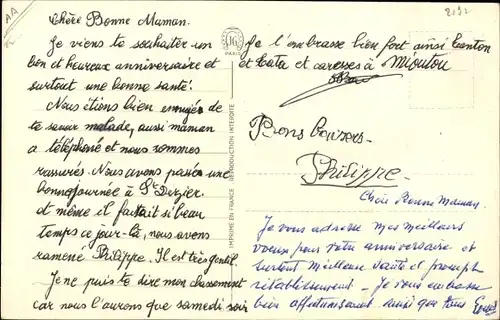 AA
2132
Chère Bonne Maman.
Je viens te souhaiter un
bon et heureux anniversaire et
surtout une bonne santé.
Nous étions bien ennuyés de
te savoir malade, aussi maman
a téléphoné et nous sommes
rassurés. Nous avons passé une
bonne journée à St Dizier.
et même il faisait si beau
temps ce jour-là, nous avons
ramené Philippe. Il est très gentil.
Je ne puis te dire mon classement
car nous l'aurons que samedi soir
PARIS
IMPRIMÉ EN FRANCE REPRODUCTION INTERDITE
Je t'embrasse bien fort ainsi Tonton
et Tata et caresses à Mioutou
Bons baisers.
Philippe.
Chère Bonne Maman.
Je vous adresse mes meilleurs
voeux pour votre anniversaire et
surtout meilleure santé et prompt
rétablissement. Je vous embrasse
bien affectueusement ainsi que tous